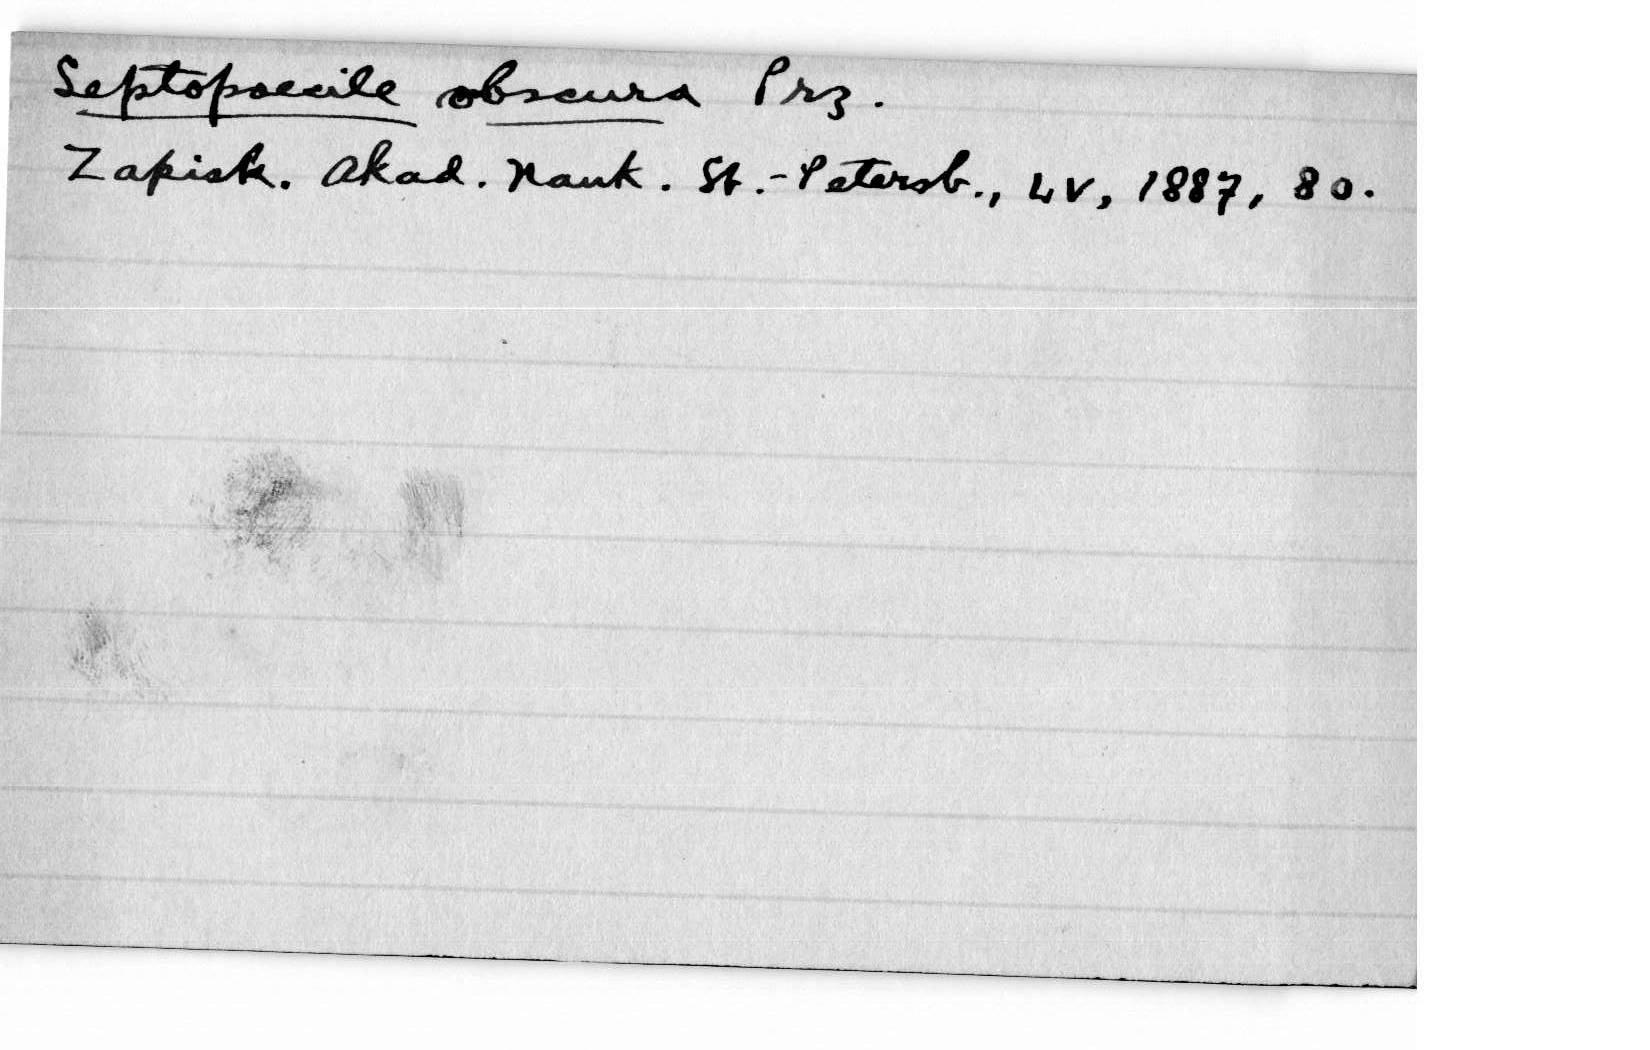 Septopoecile obscura Prz.
Zapisk. Akad. Nauk. St.-Petersb., LV, 1887, 80.